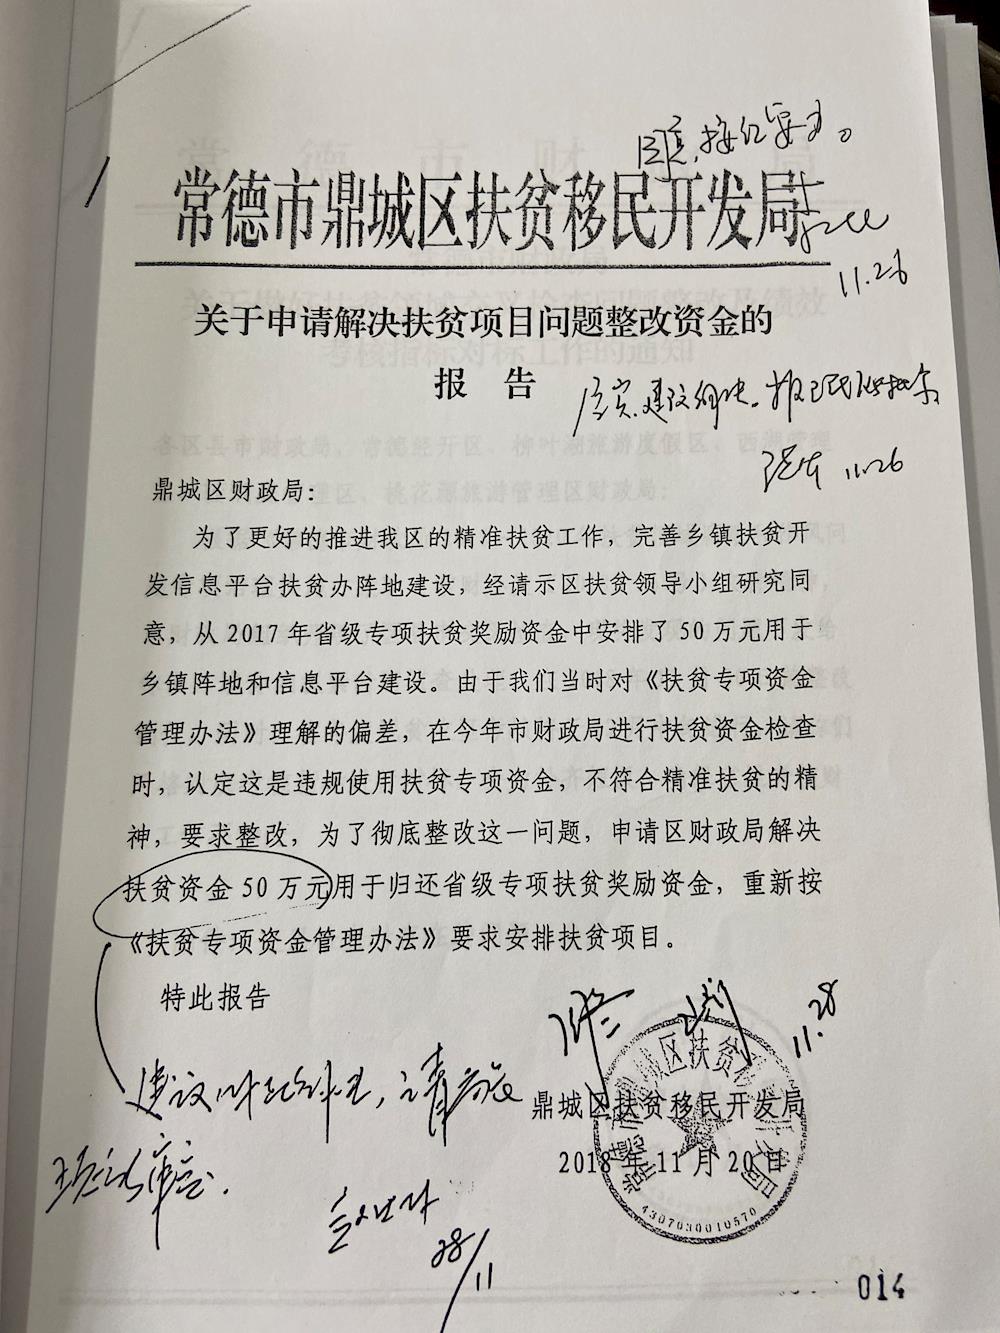 常德市鼎城区扶贫移民开发局
11.26
关于申请解决扶贫项目问题整改资金的
报 告
11.26
鼎城区财政局：
为了更好的推进我区的精准扶贫工作，完善乡镇扶贫开
发信息平台扶贫办阵地建设，经请示区扶贫领导小组研究同
意，从 2017 年省级专项扶贫奖励资金中安排了 50 万元用于
乡镇阵地和信息平台建设。由于我们当时对《扶贫专项资金
管理办法》理解的偏差，在今年市财政局进行扶贫资金检查
时，认定这是违规使用扶贫专项资金，不符合精准扶贫的精
神，要求整改，为了彻底整改这一问题，申请区财政局解决
扶贫资金 50 万元用于归还省级专项扶贫奖励资金，重新按
《扶贫专项资金管理办法》要求安排扶贫项目。
特此报告
11.28
鼎城区扶贫移民开发局
2018 年 11 月 20 日
4307030010570
28/11
014